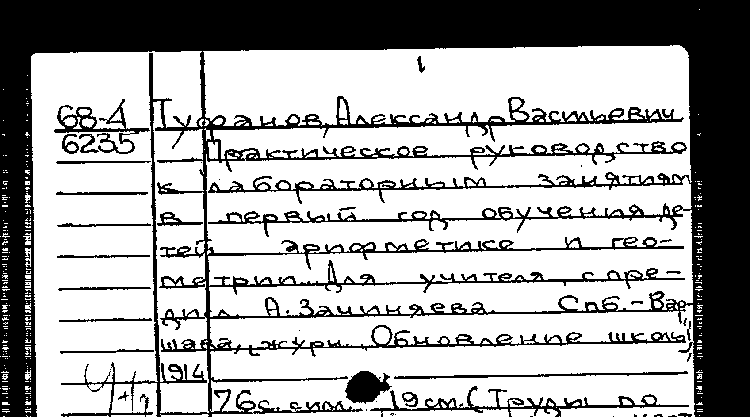 68-4 Туфанов, Александр Васильевич
6235 Практическое руководство
к лабораторным занятиям
в первый год обучения де-
тей арифметике и гео-
метрии. Для учителя, с пре-
дисл. А. Зачиняева. Спб.-Вар-
шава, журн. Обновление школы
1914
76с. 19см. (Труды по